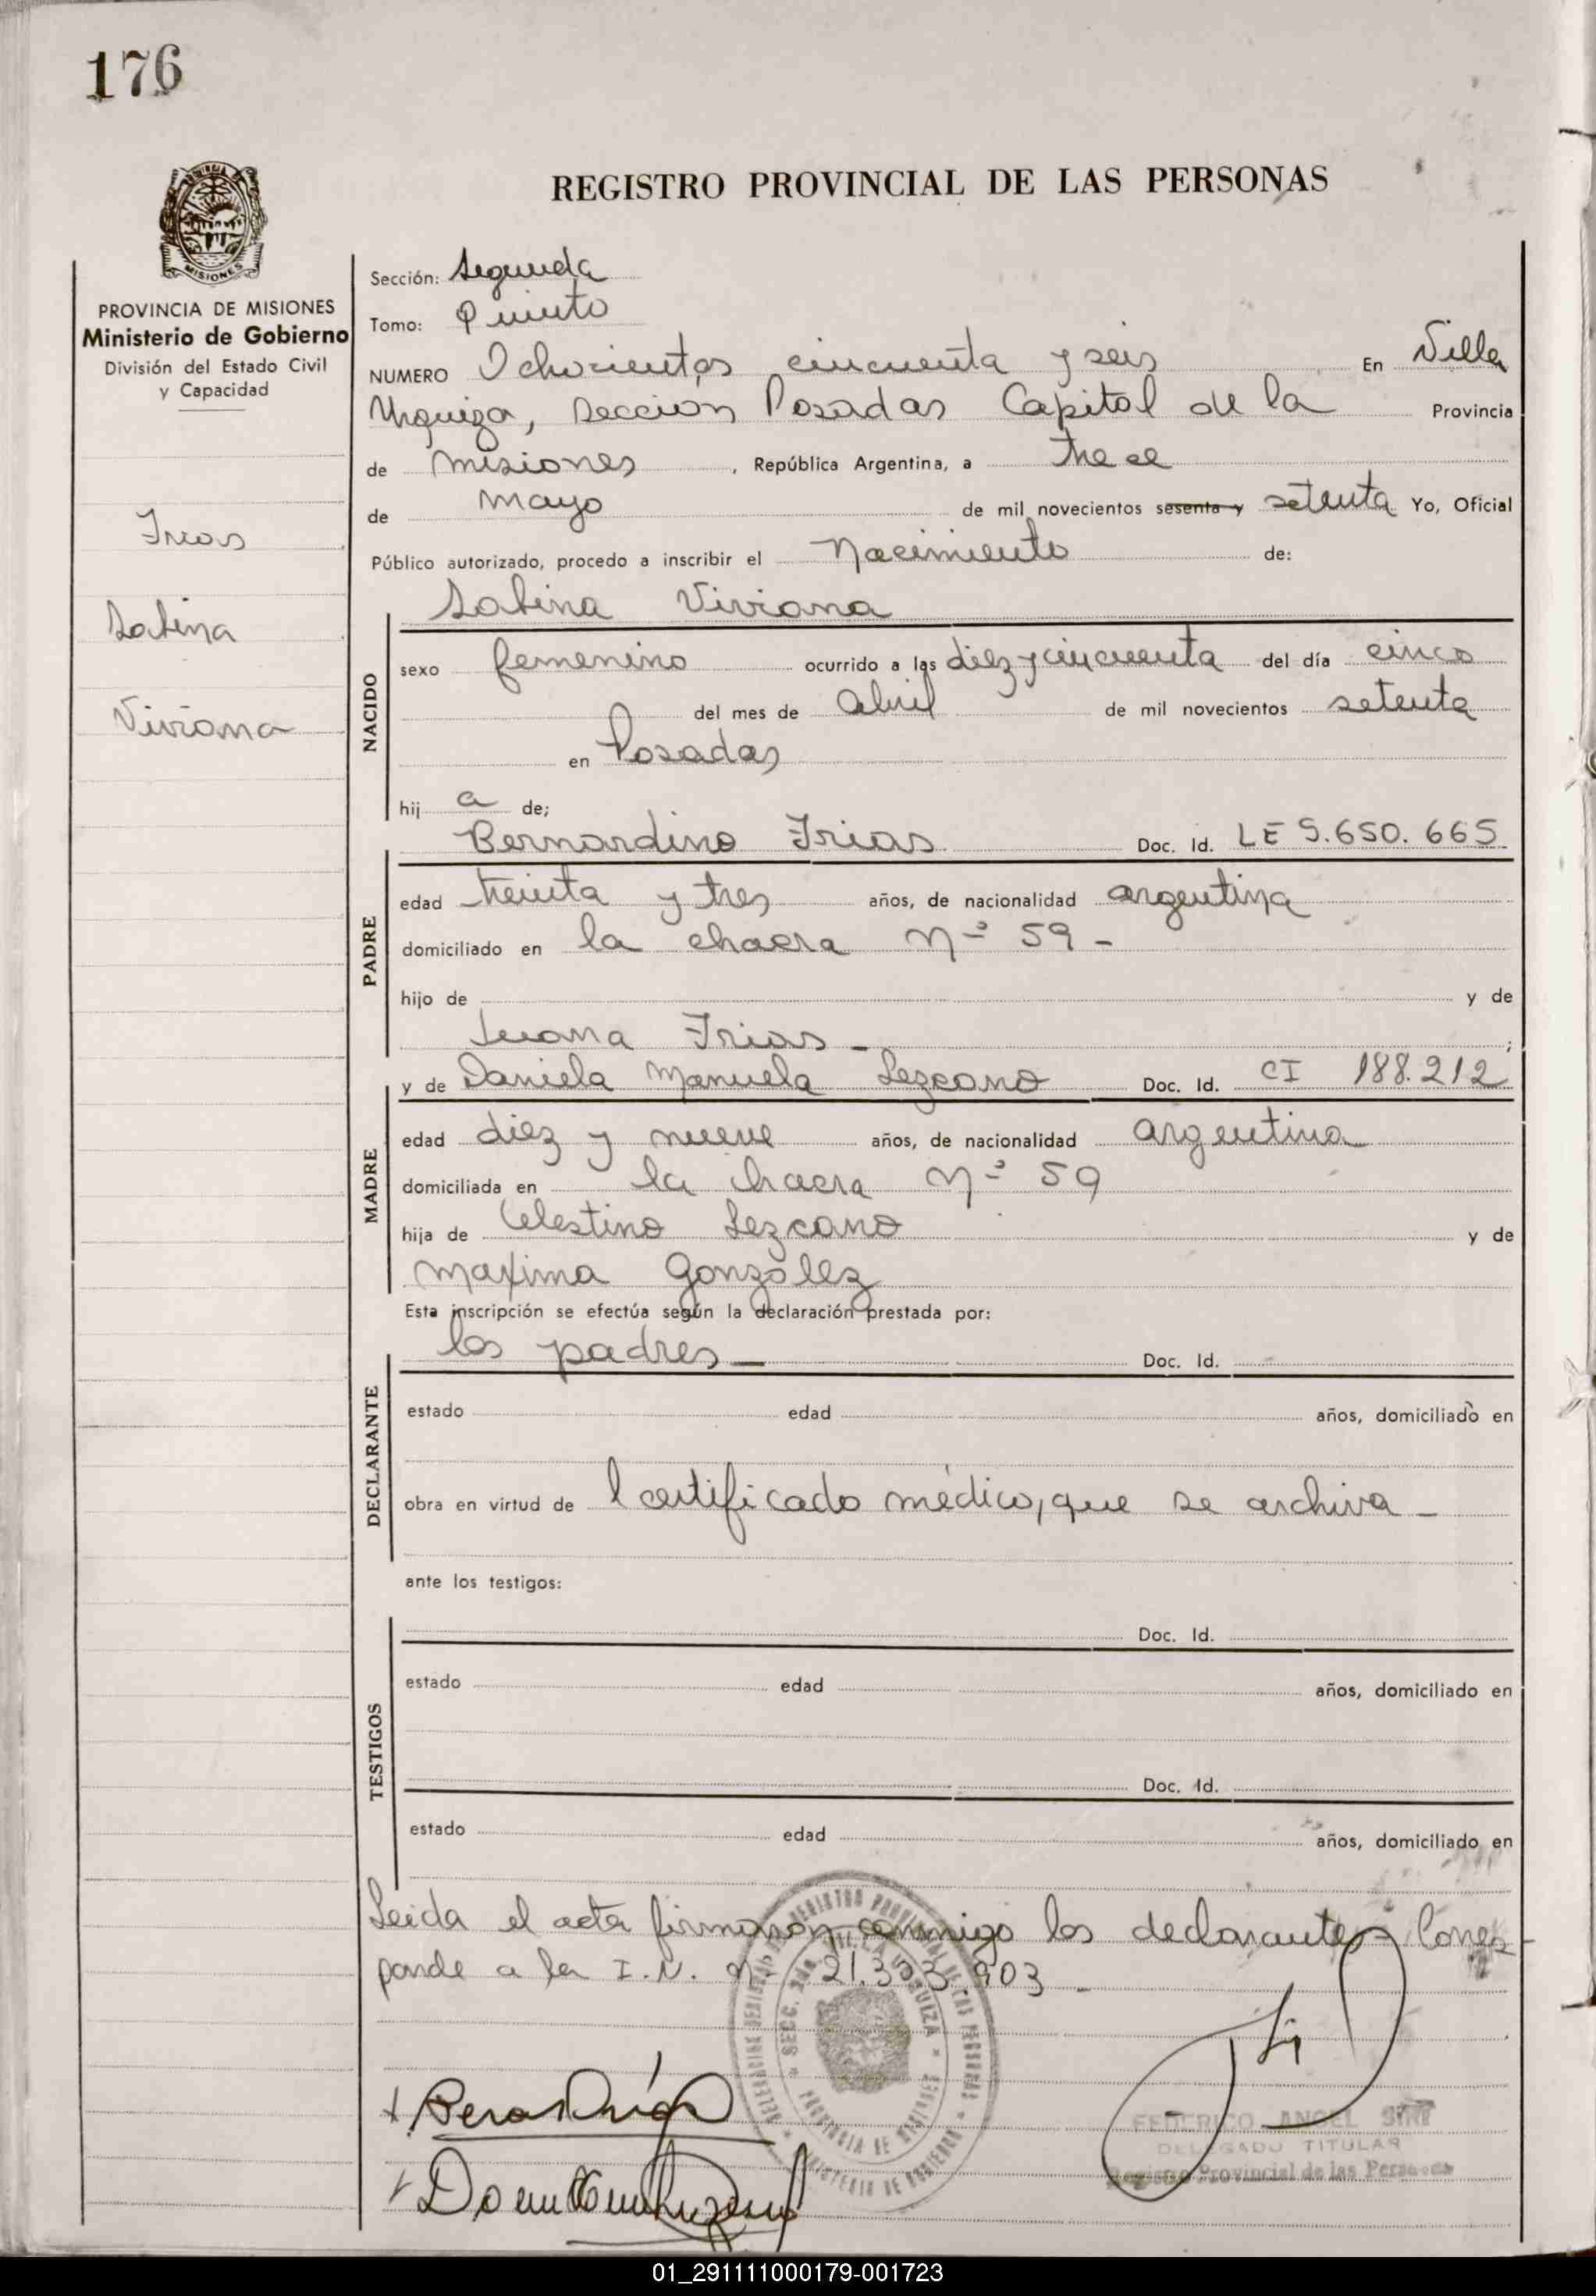 176
REGISTRO PROVINCIAL DE LAS PERSONAS
MISIONES
PROVINCIA DE MISIONES
Ministerio de Gobierno
División del Estado Civil
y Capacidad
Frias
Sabina
Viviana
Sección: Segunda
Tomo: Quinto
NUMERO Ochocientos cincuenta y seis En Villa
Urquiza, seccion Posadas Capital de la Provincia
de misiones, República Argentina, a trece
de mayo de mil novecientos sesenta y setenta Yo, Oficial
Público autorizado, procedo a inscribir el nacimiento de:
Sabina Viviana
NACIDO
sexo femenino ocurrido a las diez y cincuenta del día cinco
del mes de abril de mil novecientos setenta
en Posadas
hij a de;
Bernardino Frias Doc. Id. LE 5.650.665
PADRE
edad treinta y tres años, de nacionalidad argentina
domiciliado en la chacra Nº 59 -
hijo de y de
Juana Frias - ;
y de Daniela Manuela Lezcano Doc. Id. CI 188.212
MADRE
edad diez y nueve años, de nacionalidad argentina
domiciliada en la chacra Nº 59
hija de Celestino Lezcano y de
Maxima Gonzàlez
Esta inscripción se efectúa según la declaración prestada por:
los padres - Doc. Id.
DECLARANTE
estado edad años, domiciliado en
obra en virtud de l certificado médico, que se archiva -
ante los testigos:
Doc. Id.
TESTIGOS
estado edad años, domiciliado en
Doc. Id.
estado edad años, domiciliado en
Leida el acta firmaron conmigo los declarantes - Corres-
ponde a la I.N. nº 21.303.903 -
SECC. 2da VILLA URQUIZA
PROVINCIA DE MISIONES
MINISTERIO DE GOBIERNO
FEDERICO ANGEL
DELEGADO TITULAR
Registro Provincial de las Personas
01_291111000179-001723